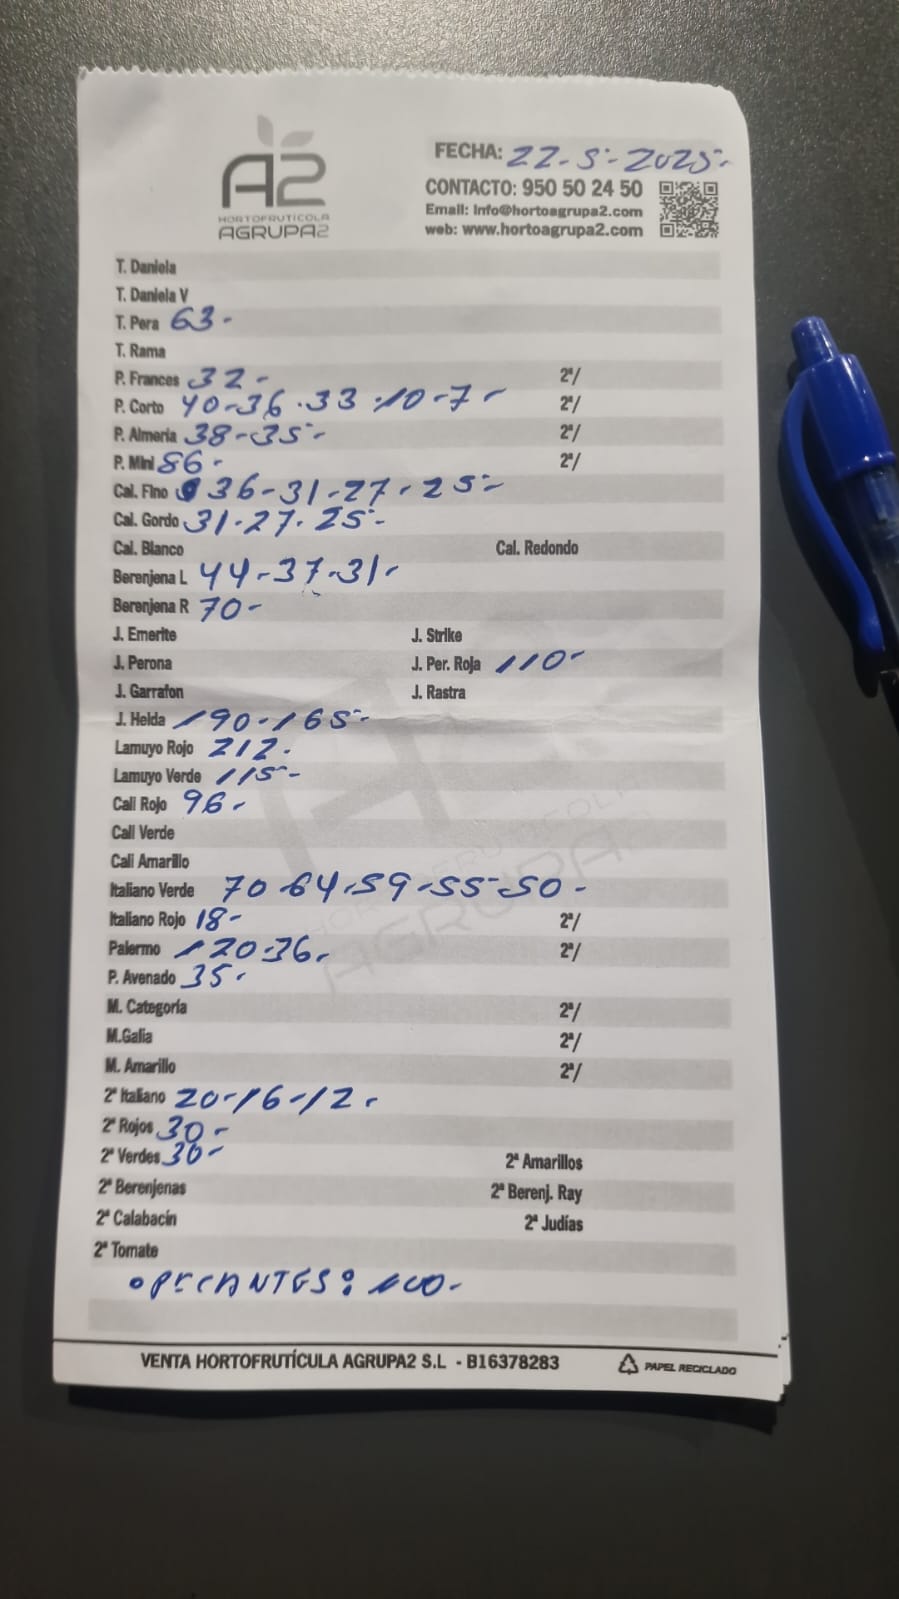 A2
HORTOFRUTÍCOLA
AGRUPA2
FECHA: 22-5-2025-
CONTACTO: 950 50 24 50
Email: info@hortoagrupa2.com
web: www.hortoagrupa2.com
T. Daniela
T. Daniela V
T. Pera 63-
T. Rama
P. Frances 32- 2ª/
P. Corto 40-36.33.10-7- 2ª/
P. Almería 38-35- 2ª/
P. Mini 86- 2ª/
Cal. Fino 36-31-27-25-
Cal. Gordo 31-27-25-
Cal. Blanco Cal. Redondo
Berenjena L 44-37-31-
Berenjena R 70-
J. Emerite J. Strike
J. Perona J. Per. Roja 110-
J. Garrafon J. Rastra
J. Helda 190-165-
Lamuyo Rojo 212-
Lamuyo Verde 115-
Cali Rojo 96-
Cali Verde
Cali Amarillo
Italiano Verde 70-64-59-55-50-
Italiano Rojo 18- 2ª/
Palermo 120-36- 2ª/
P. Avenado 35-
M. Categoría 2ª/
M.Galia 2ª/
M. Amarillo 2ª/
2ª Italiano 20-16-12-
2ª Rojos 30-
2ª Verdes 30- 2ª Amarillos
2ª Berenjenas 2ª Berenj. Ray
2ª Calabacín 2ª Judías
2ª Tomate
PICANTES: 100-
VENTA HORTOFRUTÍCULA AGRUPA2 S.L - B16378283
PAPEL RECICLADO